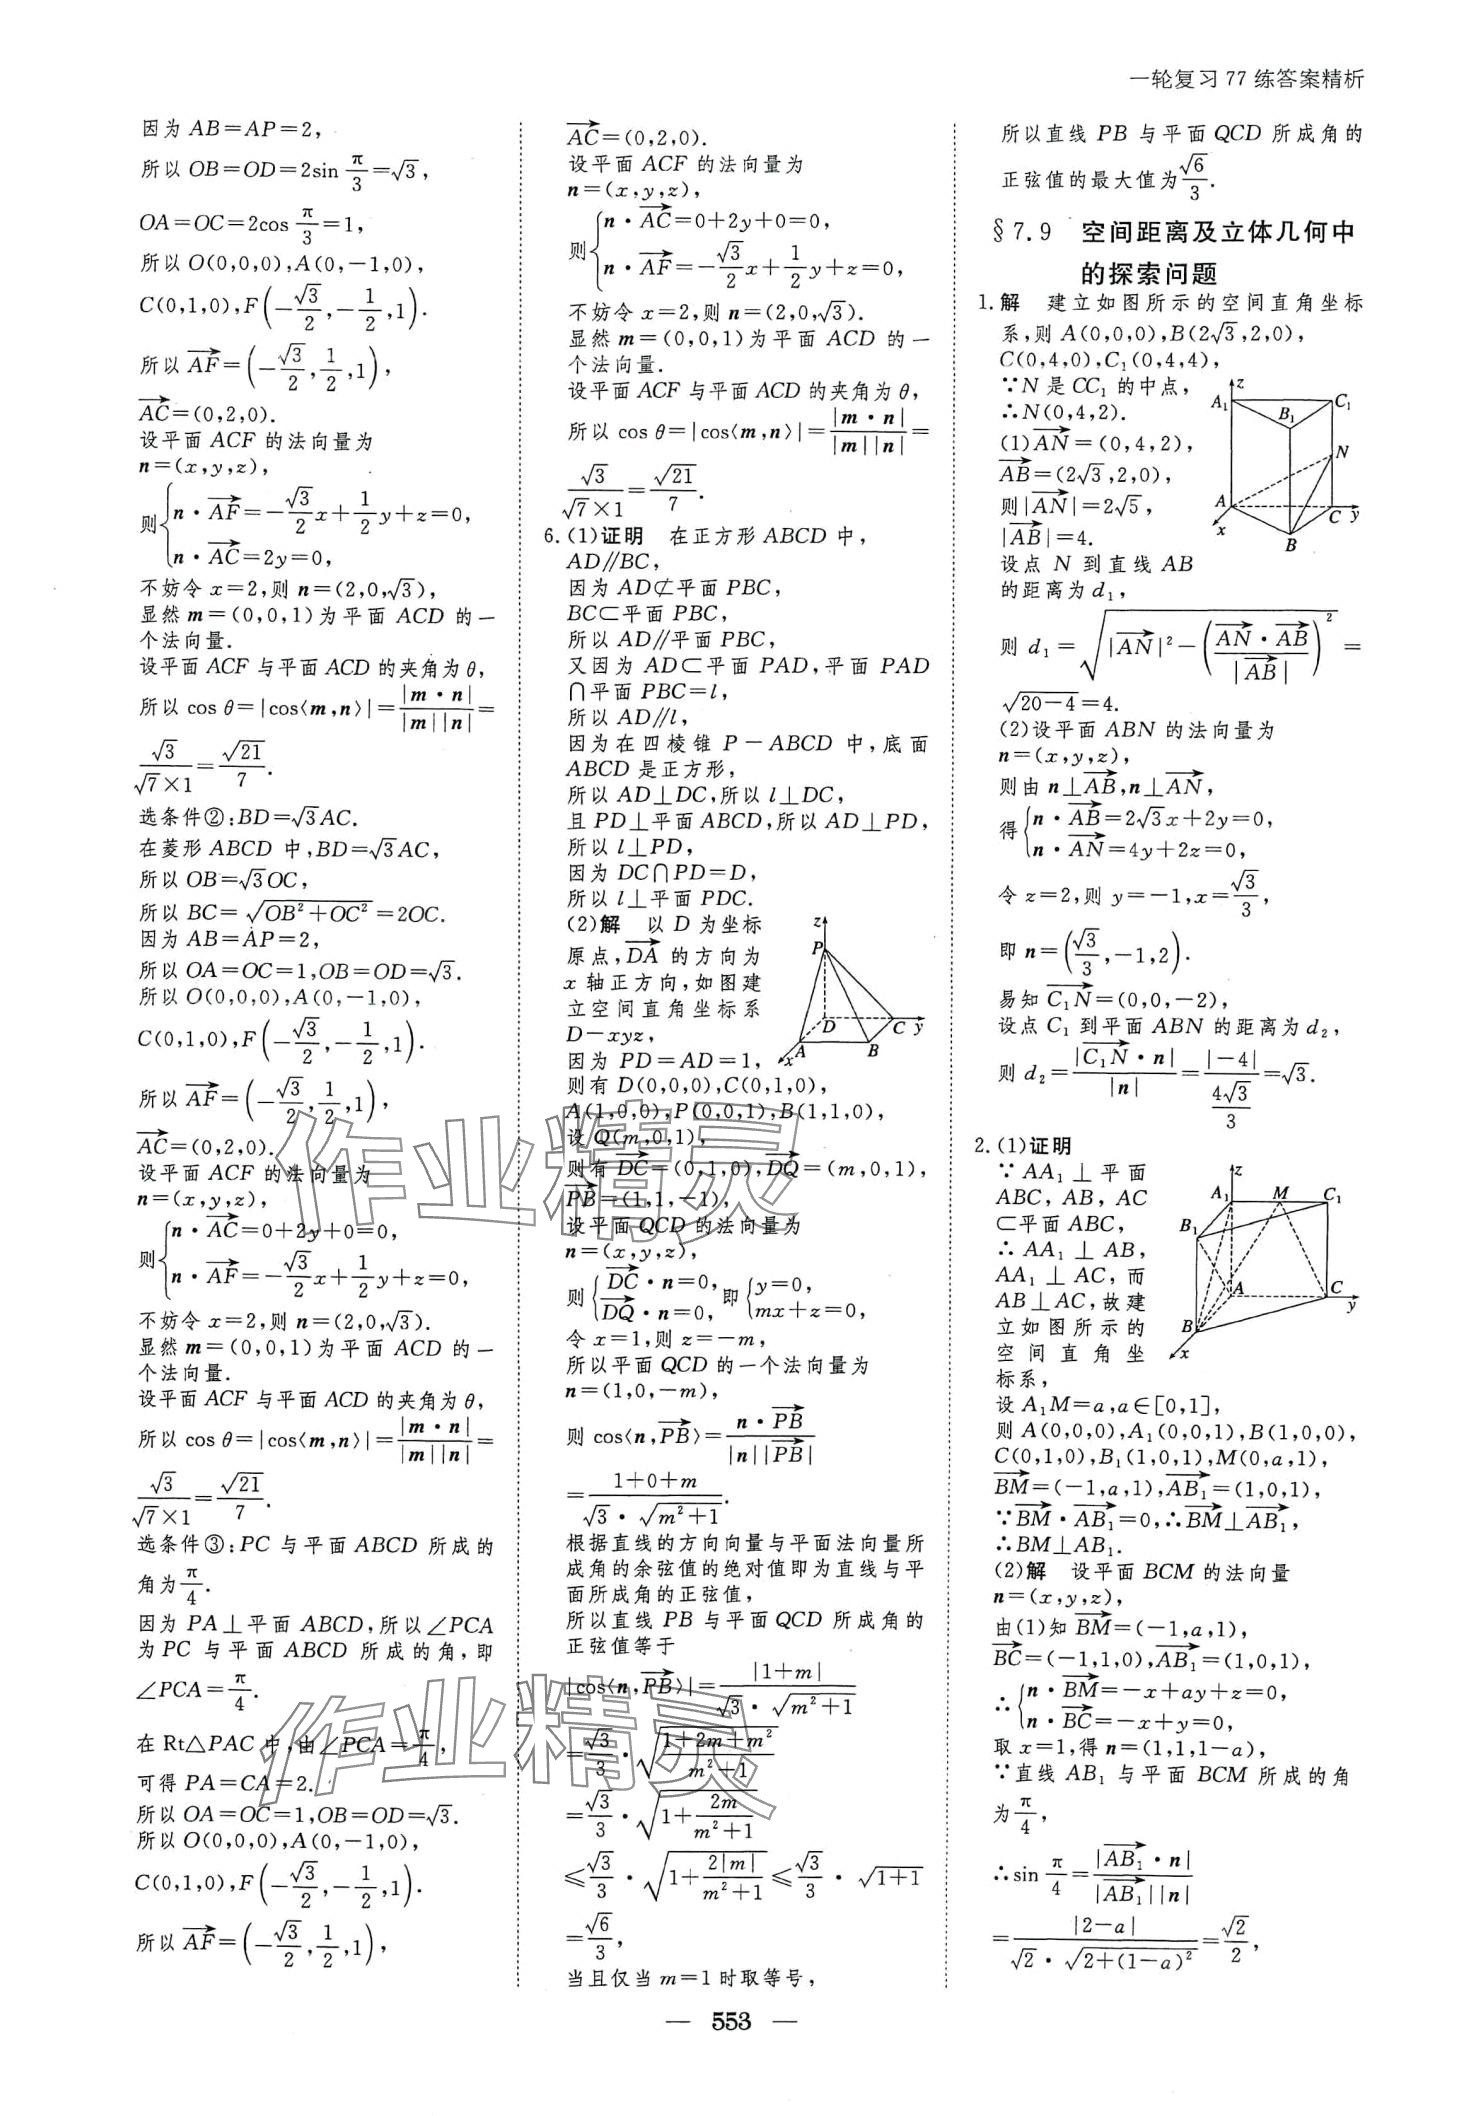 一轮复习77练答案精析
因为 AB=AP=2,
所以 OB=OD=2sin π/3=√3,
OA=OC=2cos π/3=1,
所以 O(0,0,0),A(0,-1,0),
C(0,1,0),F(-√3/2,-1/2,1).
所以 AF→=(-√3/2,1/2,1),
AC→=(0,2,0).
设平面 ACF 的法向量为
n=(x,y,z),
则{n·AF→=-√3/2x+1/2y+z=0,
n·AC→=2y=0,
不妨令 x=2,则 n=(2,0,√3),
显然 m=(0,0,1)为平面 ACD 的一
个法向量.
设平面 ACF 与平面 ACD 的夹角为 θ,
所以 cos θ=|cos⟨m,n⟩|=|m·n|/|m||n|=
√3/√7×1=√21/7.
选条件②:BD=√3AC.
在菱形 ABCD 中,BD=√3AC,
所以 OB=√3OC,
所以 BC=√OB²+OC²=2OC.
因为 AB=AP=2,
所以 OA=OC=1,OB=OD=√3.
所以 O(0,0,0),A(0,-1,0),
C(0,1,0),F(-√3/2,-1/2,1).
所以 AF→=(-√3/2,1/2,1),
AC→=(0,2,0).
设平面 ACF 的法向量为
n=(x,y,z),
则{n·AC→=0+2y+0=0,
n·AF→=-√3/2x+1/2y+z=0,
不妨令 x=2,则 n=(2,0,√3).
显然 m=(0,0,1)为平面 ACD 的一
个法向量.
设平面 ACF 与平面 ACD 的夹角为 θ,
所以 cos θ=|cos⟨m,n⟩|=|m·n|/|m||n|=
√3/√7×1=√21/7.
选条件③:PC 与平面 ABCD 所成的
角为π/4.
因为 PA⊥平面 ABCD,所以∠PCA
为 PC 与平面 ABCD 所成的角,即
∠PCA=π/4.
在 Rt△PAC 中,由∠PCA=π/4,
可得 PA=CA=2.
所以 OA=OC=1,OB=OD=√3.
所以 O(0,0,0),A(0,-1,0),
C(0,1,0),F(-√3/2,-1/2,1).
所以 AF→=(-√3/2,1/2,1),
AC→=(0,2,0).
设平面 ACF 的法向量为
n=(x,y,z),
则{n·AC→=0+2y+0=0,
n·AF→=-√3/2x+1/2y+z=0,
不妨令 x=2,则 n=(2,0,√3).
显然 m=(0,0,1)为平面 ACD 的一
个法向量.
设平面 ACF 与平面 ACD 的夹角为 θ,
所以 cos θ=|cos⟨m,n⟩|=|m·n|/|m||n|=
√3/√7×1=√21/7.
6.(1)证明 在正方形 ABCD 中,
AD∥BC,
因为 AD⊄平面 PBC,
BC⊂平面 PBC,
所以 AD∥平面 PBC,
又因为 AD⊂平面 PAD,平面 PAD
∩平面 PBC=l,
所以 AD∥l,
因为在四棱锥 P-ABCD 中,底面
ABCD 是正方形,
所以 AD⊥DC,所以 l⊥DC,
且 PD⊥平面 ABCD,所以 AD⊥PD,
所以 l⊥PD,
因为 DC∩PD=D,
所以 l⊥平面 PDC.
(2)解 以 D 为坐标
原点,DA→ 的方向为
x 轴正方向,如图建
立空间直角坐标系
D-xyz,
z
P
D
C
y
A
B
x
因为 PD=AD=1,
则有 D(0,0,0),C(0,1,0),
A(1,0,0),P(0,0,1),B(1,1,0),
设 Q(m,0,1),
则有 DC→=(0,1,0),DQ→=(m,0,1),
PB→=(1,1,-1),
设平面 QCD 的法向量为
n=(x,y,z),
则{DC→·n=0, DQ→·n=0, 即{y=0, mx+z=0,
令 x=1,则 z=-m,
所以平面 QCD 的一个法向量为
n=(1,0,-m),
则 cos⟨n,PB→⟩=n·PB→/|n||PB→|
=1+0+m/√3·√m²+1.
根据直线的方向向量与平面法向量所
成角的余弦值的绝对值即为直线与平
面所成角的正弦值,
所以直线 PB 与平面 QCD 所成角的
正弦值等于
|cos⟨n,PB→⟩|=|1+m|/√3·√m²+1
=√3/3·√(1+2m+m²/m²+1)
=√3/3·√(1+2m/m²+1)
≤√3/3·√(1+2|m|/m²+1)≤√3/3·√1+1
=√6/3,
当且仅当 m=1 时取等号,
所以直线 PB 与平面 QCD 所成角的
正弦值的最大值为√6/3.
§7.9 空间距离及立体几何中
的探索问题
1.解 建立如图所示的空间直角坐标
系,则 A(0,0,0),B(2√3,2,0),
C(0,4,0),C₁(0,4,4),
∵N 是 CC₁ 的中点,
∴N(0,4,2).
(1)AN→=(0,4,2),
AB→=(2√3,2,0),
则|AN→|=2√5,
|AB→|=4.
z
A₁
B₁
C₁
N
A
x
B
C
y
设点 N 到直线 AB
的距离为 d₁,
则 d₁=√(|AN→|²-(AN→·AB→/|AB→|)²)=
√20-4=4.
(2)设平面 ABN 的法向量为
n=(x,y,z),
则由 n⊥AB→,n⊥AN→,
得{n·AB→=2√3x+2y=0,
n·AN→=4y+2z=0,
令 z=2,则 y=-1,x=√3/3,
即 n=(√3/3,-1,2).
易知 C₁N→=(0,0,-2),
设点 C₁ 到平面 ABN 的距离为 d₂,
则 d₂=|C₁N→·n|/|n|=|-4|/(4√3/3)=√3.
2.(1)证明
∵AA₁⊥平面
ABC,AB,AC
⊂平面 ABC,
∴AA₁⊥AB,
AA₁⊥AC,而
AB⊥AC,故建
立如图所示的
空间直角坐
标系,
z
A₁
M
C₁
B₁
A
C
y
B
x
设 A₁M=a,a∈[0,1],
则 A(0,0,0),A₁(0,0,1),B(1,0,0),
C(0,1,0),B₁(1,0,1),M(0,a,1),
BM→=(-1,a,1),AB₁→=(1,0,1),
∵BM→·AB₁→=0,∴BM→⊥AB₁→,
∴BM⊥AB₁.
(2)解 设平面 BCM 的法向量
n=(x,y,z),
由(1)知 BM→=(-1,a,1),
BC→=(-1,1,0),AB₁→=(1,0,1),
∴{n·BM→=-x+ay+z=0,
n·BC→=-x+y=0,
取 x=1,得 n=(1,1,1-a),
∵直线 AB₁ 与平面 BCM 所成的角
为π/4,
∴sin π/4=|AB₁→·n|/|AB₁→||n|
=|2-a|/√2·√2+(1-a)²=√2/2,
— 553 —
作业精灵
作业精灵